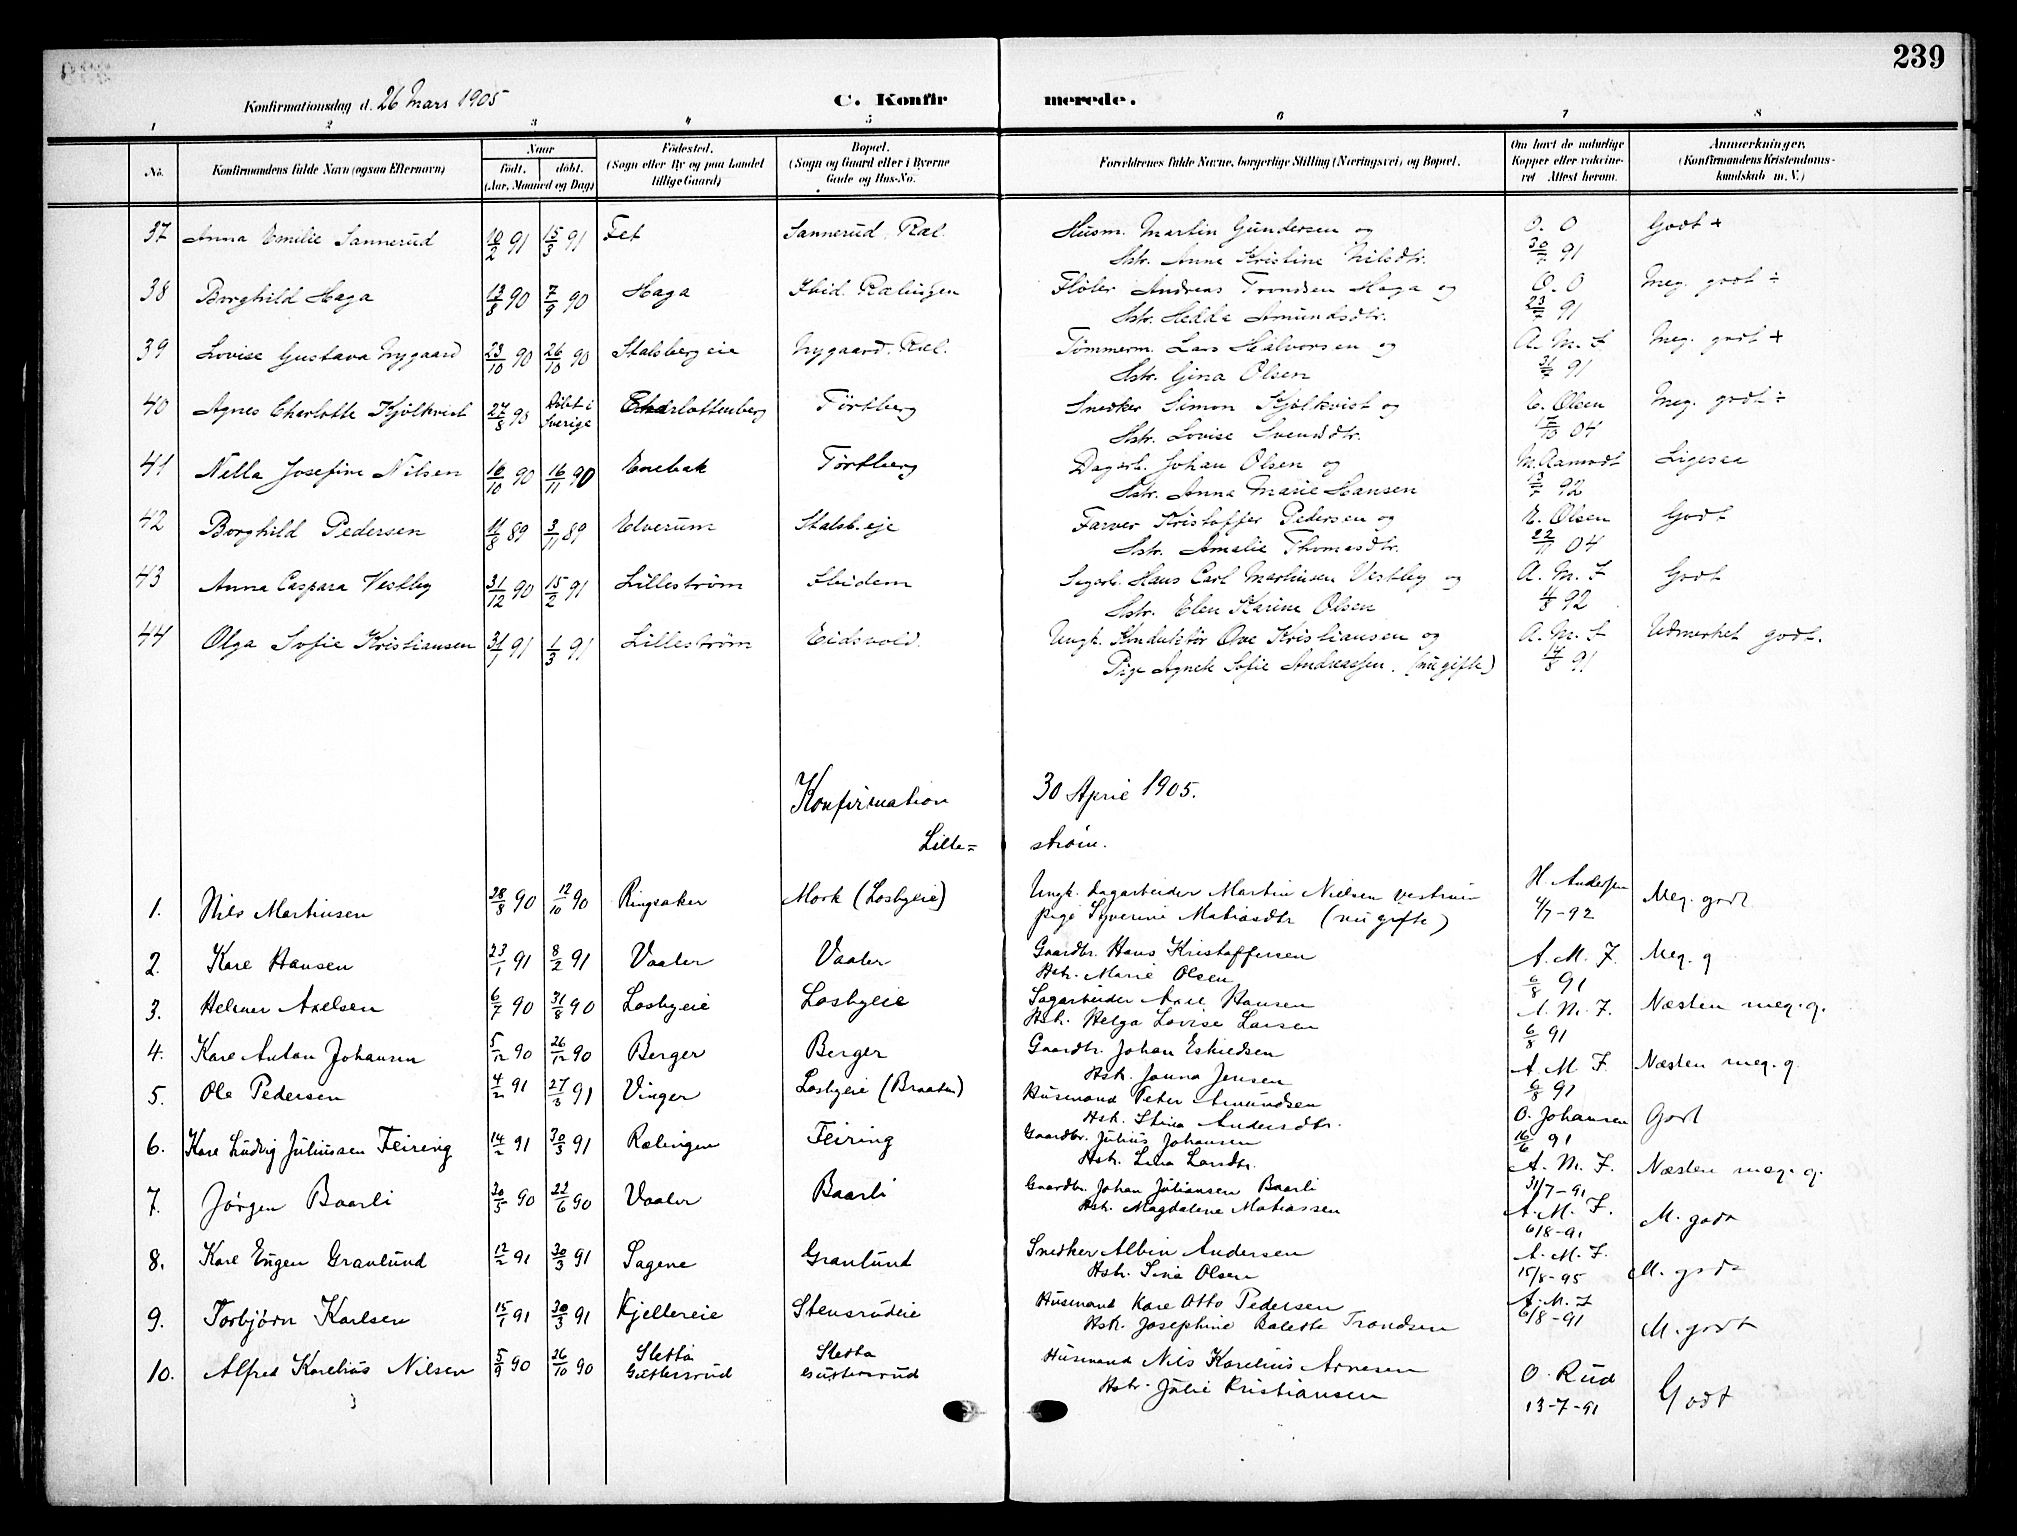 239
Konfirmationsdag d. 26 Mars 1905
C. Konfirmerede.
1 2 3 4 5 6 7 8
No. Konfirmandens fulde Navn (ogsaa Efternavn) Naar født. døbt. (Aar, Maaned og Dag) Fødested. (Sogn eller By og paa Landet tillige Gaard) Bopæl. (Sogn og Gaard eller i Byerne Gade og Hus-No. Forældrenes fulde Navne, borgerlige Stilling (Næringsvei) og Bopæl. Om havt de naturlige Kopper eller vaccineret Attest herom. Anmerkninger, (Konfirmandens Kristendomskundskab m. V.)
37 Anna Emilie Sannerud 10/2 91 15/3 91 Fet Sannerud, Ræl. Husm. Martin Gundersen og O. O Godt +
Hstr. Anne Kristine Nilsdtr. 30/7 91
38 Borghild Haga 13/8 90 7/9 90 Haga Ibid. Rælingen Fløter Andreas Trondsen Haga og O. O Meg. godt ÷
Hstr. Hedda Amundsdtr. 23/7 91
39 Lovise Gustava Nygaard 23/10 90 26/10 90 Stalsbergeie Nygaard. Ræl. Tømmerm. Lars Halvorsen og A. M. F Meg. godt +
Hstr. Gina Olsen 31/7 91
40 Agnes Charlotte Kjölkvist 27/8 90 Døbt i Sverige Charlottenberg Tørtberg Snedker Simon Kjölkvist og E. Olsen Meg. godt ÷
Hstr. Lovise Svensdtr. 04
41 Nella Josefine Nilsen 16/10 90 16/11 90 Enebak Tørtberg Dagarb. Johan Olsen og M. Aamodt Ligesaa
Hstr. Anna Marie Hansen 13/7 92
42 Borghild Pedersen 11/8 89 3/11 89 Elverum Stalsb.eje Farver Kristoffer Pedersen og E. Olsen Godt
Hstr. Amalie Thomasdtr. 22/11 04
43 Anna Caspara Vestby 31/12 90 15/2 91 Lillestrøm Ibidem Sagarb. Hans Carl Martinsen Vestby og A. M. F Godt
Hstr. Elen Karine Olsen 11/8 92
44 Olga Sofie Kristiansen 31/1 91 1/3 91 Lillestrøm Eidsvold. Ungk. Konduktør Ove Kristiansen og A. M. F Udmerket godt.
Pige Agnete Sofie Andreassen. (nu gifte) 14/8 91
Konfirmation 30 April 1905.
Lille= strøm.
1. Nils Martinsen 28/8 90 12/10 90 Ringsaker Mork (Losbyeie) Ungk. Dagarbeider Martin Nielsen H Andersen Meg. godt
pige Syverine Matiasdtr (nu gifte) 4/7-92
2. Kare Hansen 23/1 91 8/2 91 Vaaler Vaaler Gaardbr. Hans Kristoffersen A. M. F. Meg. g
Hstr. Marie Olsen 6/8 91
3. Helmer Axelsen 6/7 90 31/8 90 Losbyeie Losbyeie Sagarbeider Axel Hansen A. M. F. Næsten meg. g.
Hstr. Helga Lovise Larsen 6/8 91
4. Kare Anton Johansen 5/12 90 26/12 90 Berger Berger Gaardbr. Johan Eskildsen A. M. F. Næsten meg. g
Hstr. Janna Jensen 6/8 91
5. Ole Pedersen 4/2 91 27/3 91 Vinger Losbyeie (Braaten) Husmand Peter Amundsen O. Johansen Godt
Hstr. Stina Andersdtr. 16/6 91
6. Kare Ludvig Juliussen Feiring 14/2 91 30/3 91 Rælingen Feiring Gaardbr. Julius Johansen A. M. F. Næsten meg. g.
Hstr. Lina Larsdtr. 31/7-91
7. Jørgen Baarli 30/5 90 22/6 90 Vaaler Baarli Gaardbr. Johan Juliansen Baarli A. M. F. M. godt
Hstr. Magdalene Matiassen 6/8-91
8. Kare Eugen Granlund 12/2 91 30/3 91 Sagene Granlund Snedker Albin Andersen A. M. F. M. godt
Hstr. Sina Olsen 15/8-95
9. Torbjørn Karlsen 15/1 91 30/3 91 Kjellereie Stensrudeie Husmand Kare Otto Pedersen A. M. F M. godt
Hstr. Josephine Balette Trondsen 6/8-91
10. Alfred Karelius Nilsen 5/9 90 26/10 90 Sletta Guttersrud Sletta Guttersrud Husmand Nils Karelius Arnesen O. Rud Godt
Hstr. Julie Kristiansen 13-7-91